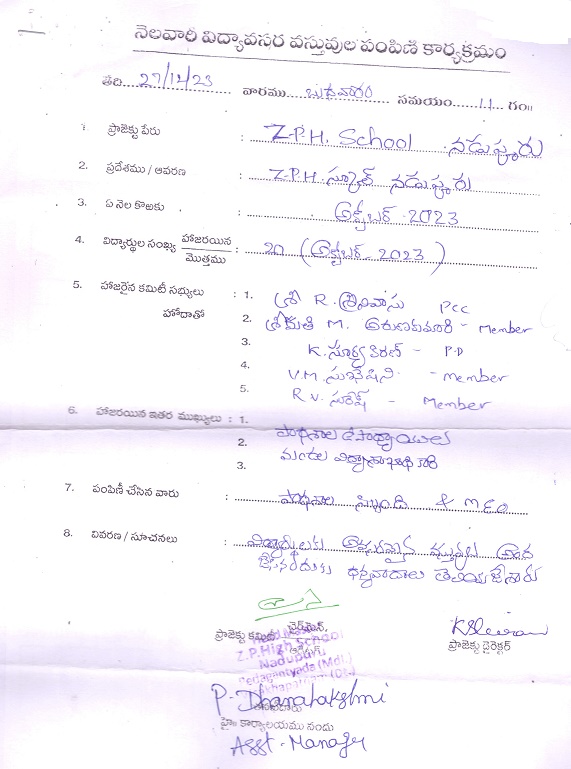 నెలవారి విద్యావసర వస్తువుల పంపిణీ కార్యక్రమం
తేది. 27/12/23 వారము... బుధవారం సమయం......11.. గం॥
1. ప్రాజెక్టు పేరు : Z.P.H. School నడుపూరు
2. ప్రదేశము / ఆవరణ : Z.P.H. స్కూల్ నడుపూరు
3. ఏ నెల కొఱకు : అక్టోబర్ 2023
4. విద్యార్థుల సంఖ్య హాజరయిన / మొత్తము : 20 (అక్టోబర్ - 2023)
5. హాజరైన కమిటీ సభ్యులు : 1. శ్రీ R. శ్రీనివాసు PCC
హోదాతో 2. శ్రీమతి M. అరుణకుమారి - Member
3. K. సూర్య కిరణ్ - P.D
4. V.M. సుభాషిని - member
5. R.V. సురేష్ - Member
6. హాజరయిన ఇతర ముఖ్యులు : 1. పాఠశాల ఉపాధ్యాయులు
2. మండల విద్యాశాఖాధికారి
3.
7. పంపిణీ చేసిన వారు : పాఠశాల సిబ్బంది & MEO
8. వివరణ / సూచనలు : విద్యార్థులకు అవసరమైన వస్తువులు అంద
జేసినందుకు ధన్యవాదాలు తెలియజేశారు
ప్రాజెక్టు కమిటీ ఛైర్మెన్,
ప్రాజెక్టు డైరెక్టర్
Z.P.High School
Nadupuru
Pedagantyada (Mdl.)
P. Dhanalakshmi
హై॥ కార్యాలయము నందు
Asst. Manager